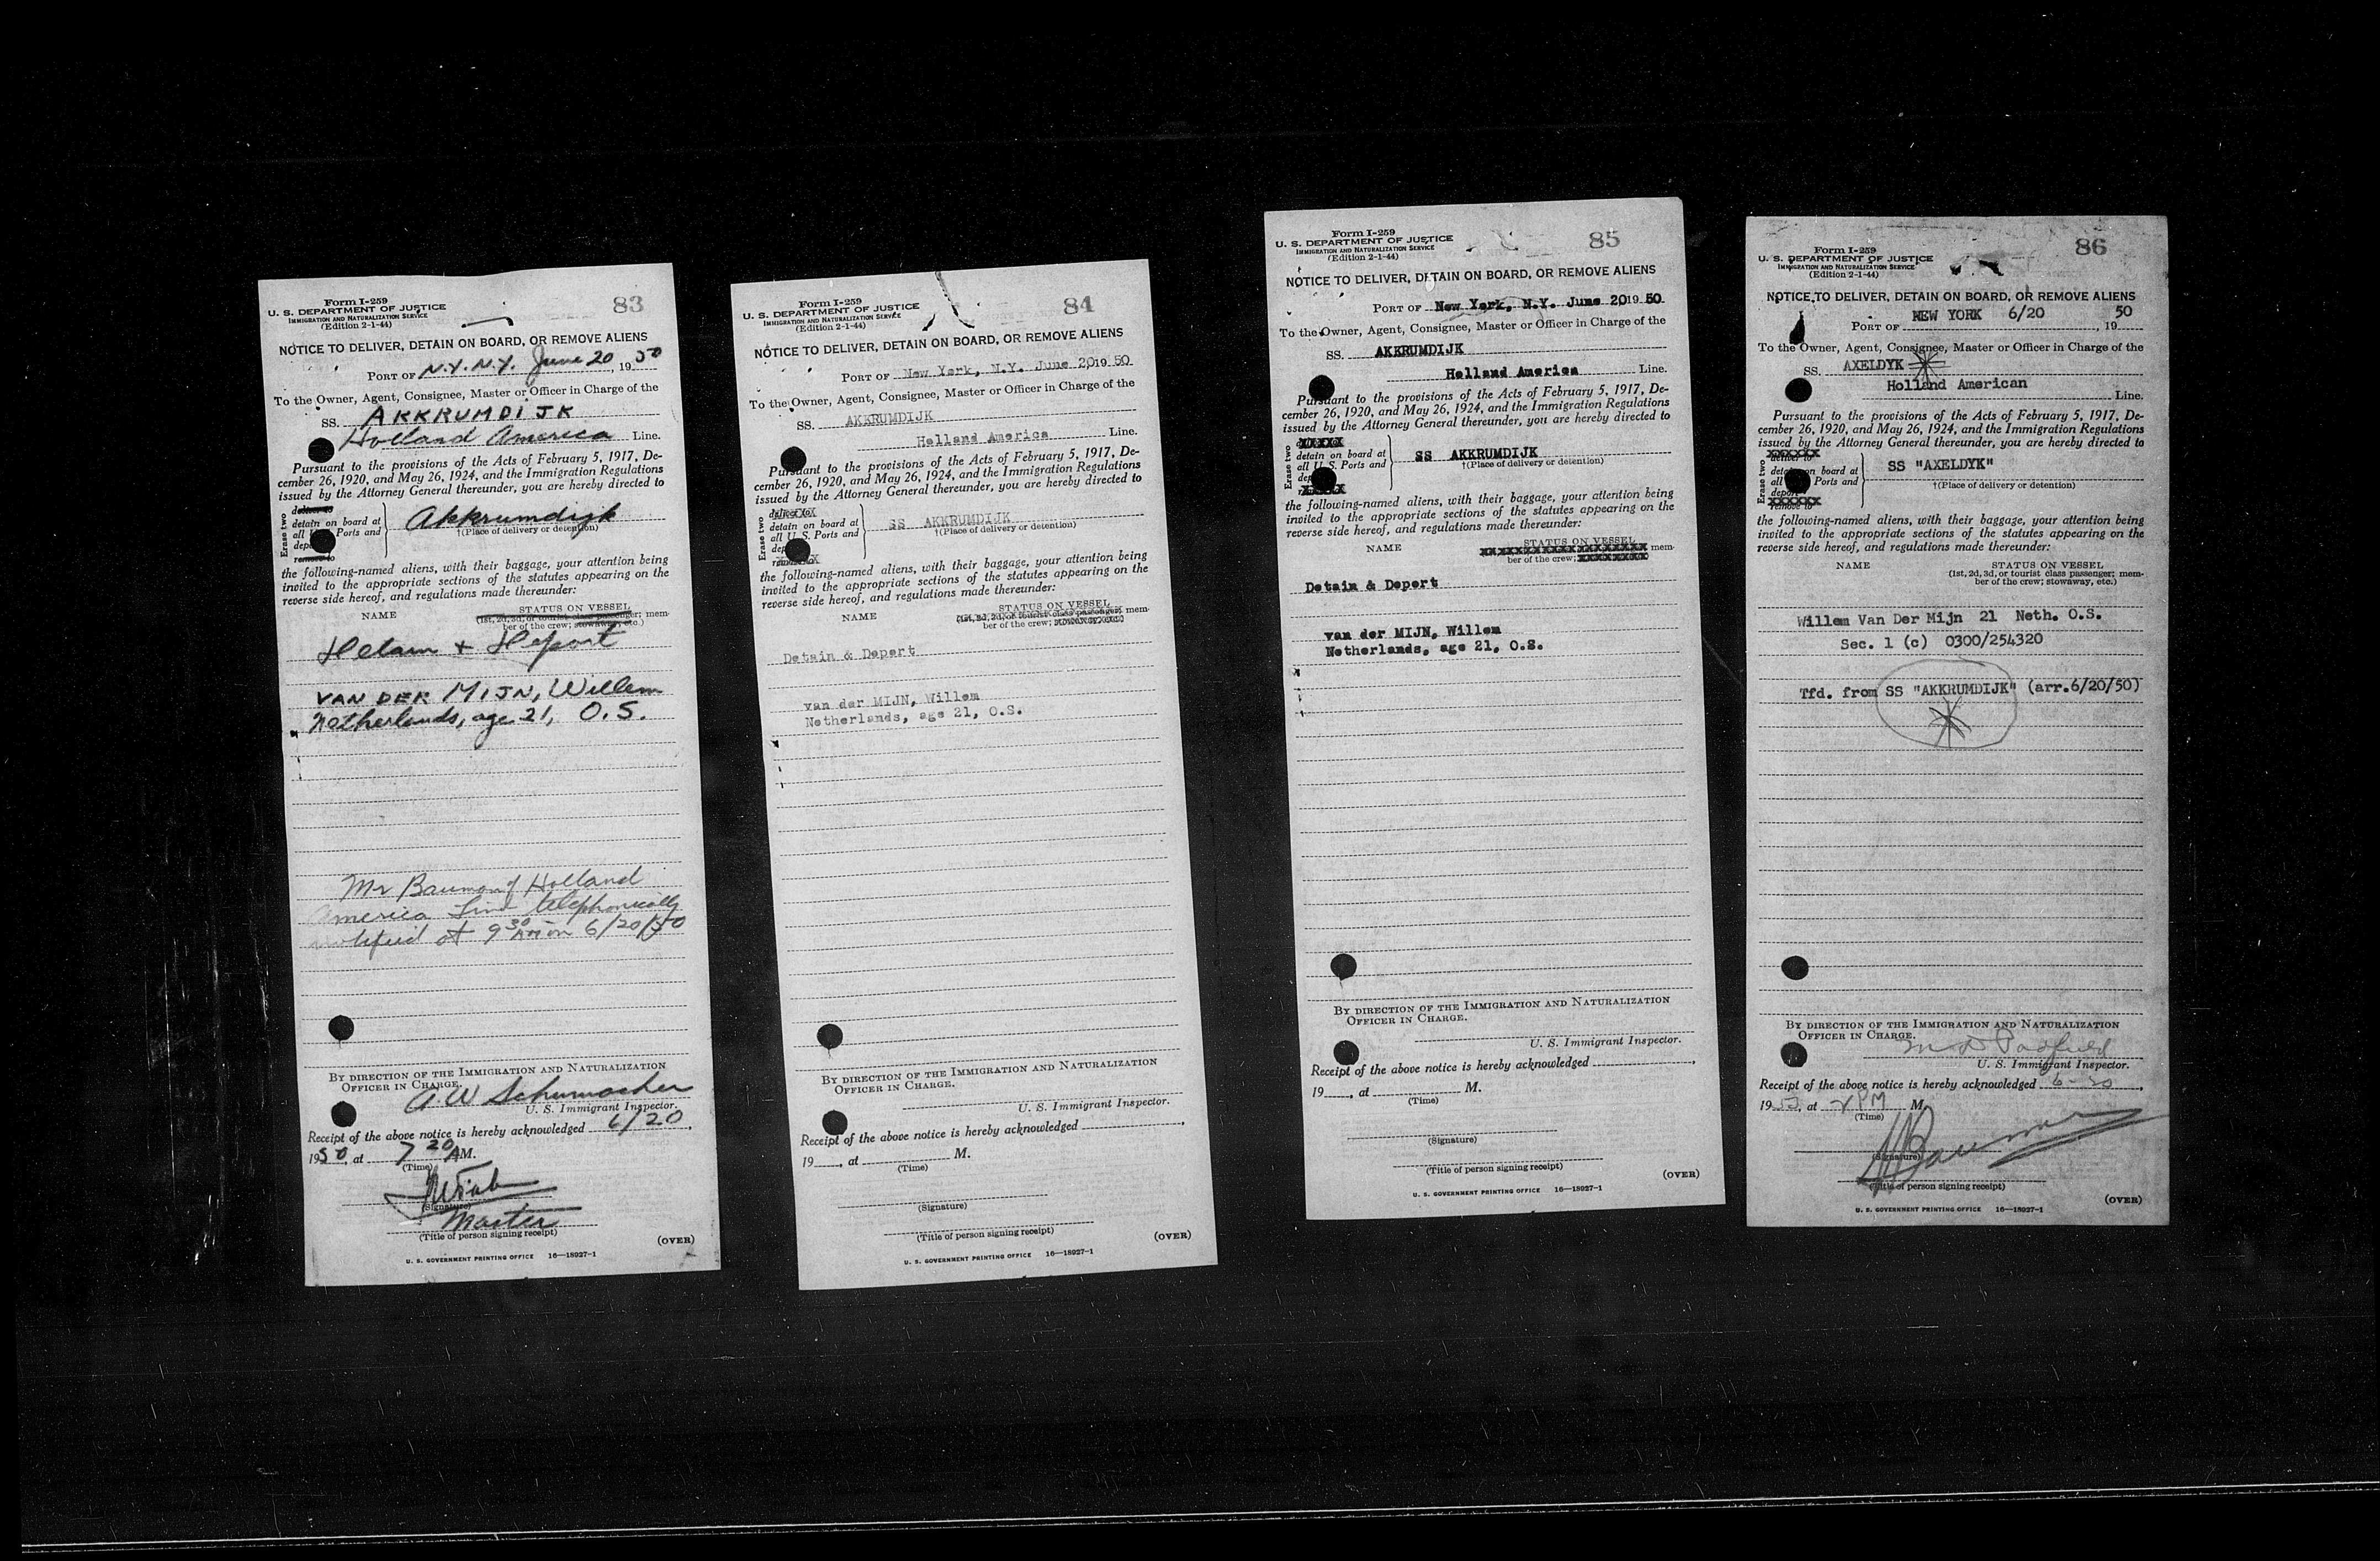 Form I-259
U. S. DEPARTMENT OF JUSTICE
IMMIGRATION AND NATURALIZATION SERVICE
(Edition 2-1-44)
83
NOTICE TO DELIVER, DETAIN ON BOARD, OR REMOVE ALIENS
PORT OF N.Y. N.Y. June 20, 1950
To the Owner, Agent, Consignee, Master or Officer in Charge of the
SS. AKKRUMDIJK
Holland America Line.
Pursuant to the provisions of the Acts of February 5, 1917, De-
cember 26, 1920, and May 26, 1924, and the Immigration Regulations
issued by the Attorney General thereunder, you are hereby directed to
Erase two
deliver to
detain on board at
all U. S. Ports and
deport
remove to
Akkrumdijk
†(Place of delivery or detention)
the following-named aliens, with their baggage, your attention being
invited to the appropriate sections of the statutes appearing on the
reverse side hereof, and regulations made thereunder:
NAME STATUS ON VESSEL
(1st, 2d, 3d, or tourist class passenger; mem-
ber of the crew; stowaway, etc.)
Detain + Deport
VAN DER MIJN, Willem
Netherlands, age 21, O.S.
Mr Bauman of Holland
America Line telephonically
notified at 9 30 AM on 6/20/50
BY DIRECTION OF THE IMMIGRATION AND NATURALIZATION
OFFICER IN CHARGE.
A. W Schumacher
U. S. Immigrant Inspector.
Receipt of the above notice is hereby acknowledged 6/20,
1950, at 7 20 AM.
(Time)
(Signature)
Master
(Title of person signing receipt)
(OVER)
U. S. GOVERNMENT PRINTING OFFICE 16—18927-1
Form I-259
U. S. DEPARTMENT OF JUSTICE
IMMIGRATION AND NATURALIZATION SERVICE
(Edition 2-1-44)
84
NOTICE TO DELIVER, DETAIN ON BOARD, OR REMOVE ALIENS
PORT OF New York, N.Y. June 20 19 50
To the Owner, Agent, Consignee, Master or Officer in Charge of the
SS. AKKRUMDIJK
Holland America Line.
Pursuant to the provisions of the Acts of February 5, 1917, De-
cember 26, 1920, and May 26, 1924, and the Immigration Regulations
issued by the Attorney General thereunder, you are hereby directed to
Erase two
detain on board at
all U. S. Ports and
SS AKKRUMDIJK
†(Place of delivery or detention)
the following-named aliens, with their baggage, your attention being
invited to the appropriate sections of the statutes appearing on the
reverse side hereof, and regulations made thereunder:
NAME STATUS ON VESSEL
(1st, 2d, 3d, or tourist class passenger; mem-
ber of the crew;
Detain & Deport
van der MIJN, Willem
Netherlands, age 21, O.S.
BY DIRECTION OF THE IMMIGRATION AND NATURALIZATION
OFFICER IN CHARGE.
U. S. Immigrant Inspector.
Receipt of the above notice is hereby acknowledged
19 , at M.
(Time)
(Signature)
(Title of person signing receipt)
(OVER)
U. S. GOVERNMENT PRINTING OFFICE 16—18927-1
Form I-259
U. S. DEPARTMENT OF JUSTICE
IMMIGRATION AND NATURALIZATION SERVICE
(Edition 2-1-44)
85
NOTICE TO DELIVER, DETAIN ON BOARD, OR REMOVE ALIENS
PORT OF New York, N.Y. June 20 19 50
To the Owner, Agent, Consignee, Master or Officer in Charge of the
SS. AKKRUMDIJK
Holland America Line.
Pursuant to the provisions of the Acts of February 5, 1917, De-
cember 26, 1920, and May 26, 1924, and the Immigration Regulations
issued by the Attorney General thereunder, you are hereby directed to
Erase two
XXXXX
detain on board at
all U. S. Ports and
XXXXX
SS AKKRUMDIJK
†(Place of delivery or detention)
the following-named aliens, with their baggage, your attention being
invited to the appropriate sections of the statutes appearing on the
reverse side hereof, and regulations made thereunder:
NAME STATUS ON VESSEL
mem-
ber of the crew;
Detain & Deport
van der MIJN, Willem
Netherlands, age 21, O.S.
BY DIRECTION OF THE IMMIGRATION AND NATURALIZATION
OFFICER IN CHARGE.
U. S. Immigrant Inspector.
Receipt of the above notice is hereby acknowledged
19 , at M.
(Time)
(Signature)
(Title of person signing receipt)
(OVER)
U. S. GOVERNMENT PRINTING OFFICE 16—18927-1
Form I-259
U. S. DEPARTMENT OF JUSTICE
IMMIGRATION AND NATURALIZATION SERVICE
(Edition 2-1-44)
86
NOTICE TO DELIVER, DETAIN ON BOARD, OR REMOVE ALIENS
PORT OF NEW YORK 6/20, 19 50
To the Owner, Agent, Consignee, Master or Officer in Charge of the
SS. AXELDYK
Holland American Line.
Pursuant to the provisions of the Acts of February 5, 1917, De-
cember 26, 1920, and May 26, 1924, and the Immigration Regulations
issued by the Attorney General thereunder, you are hereby directed to
Erase two
XXXXXX
deliver to
detain on board at
all U. S. Ports and
deport
XXXXXX
remove to
SS "AXELDYK"
†(Place of delivery or detention)
the following-named aliens, with their baggage, your attention being
invited to the appropriate sections of the statutes appearing on the
reverse side hereof, and regulations made thereunder:
NAME STATUS ON VESSEL
(1st, 2d, 3d, or tourist class passenger; mem-
ber of the crew; stowaway, etc.)
Willem Van Der Mijn 21 Neth. O.S.
Sec. 1 (c) 0300/254320
Tfd. from SS "AKKRUMDIJK" (arr.6/20/50)
BY DIRECTION OF THE IMMIGRATION AND NATURALIZATION
OFFICER IN CHARGE.
U. S. Immigrant Inspector.
Receipt of the above notice is hereby acknowledged 6-20,
1950, at 2 PM M.
(Time)
(Signature)
(Title of person signing receipt)
(OVER)
U. S. GOVERNMENT PRINTING OFFICE 16—18927-1